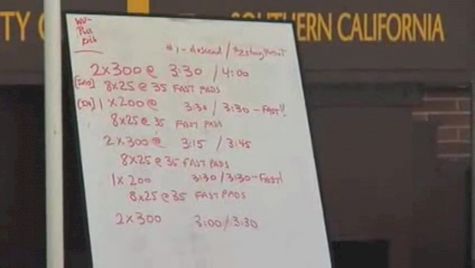 TY OUTHERN CALIFORNIA
WU-
Pull
Kick
#1 - descend /
2x300@ 3:30 / 4:00
8x25@35 FAST PADS
1x200@ 3:30 / 3:30 - FAST!!
8x25@35 FAST PADS
2x300@ 3:15 / 3:45
8x25@35 FAST PADS
1x200 3:30 / 3:30 - FAST!
8x25@35 FAST PADS
2x300 3:00 / 3:30